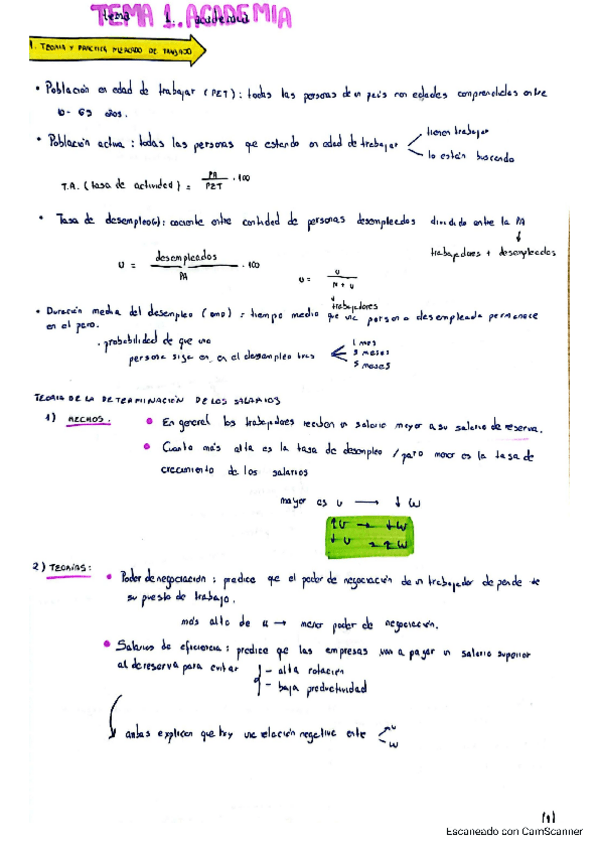 TEMA 1. ACADEMIA
tema 1. academia
1. TEORIA Y PRACTICA MERCADO DE TRABAJO
• Población en edad de trabajar (PET): todas las personas de un país con edades comprendidas entre
16- 65 años.
• Población activa: todas las personas que estando en edad de trabajar
tienen trabajo
lo están buscando
T.A. (tasa de actividad) = PA / PET · 100
• Tasa de desempleo(u): cociente entre cantidad de personas desempleadas dividido entre la PA
↓
trabajadores + desempleados
U = desempleados / PA · 100
U = U / N + U
↓
trabajadores
• Duración media del desempleo (DMD) = tiempo medio que una persona desempleada permanece
en el paro.
· probabilidad de que una
persona siga en el desempleo tras
1 mes
3 meses
5 meses
TEORIA DE LA DETERMINACIÓN DE LOS SALARIOS
1) HECHOS.
• En general los trabajadores reciben un salario mayor a su salario de reserva.
• Cuanto más alta es la tasa de desempleo / paro menor es la tasa de
crecimiento de los salarios
mayor es u → ↓ W
↑U → ↓W
↓U → ↑W
2) TEORÍAS:
• Poder de negociación: predice que el poder de negociación de un trabajador depende de
su puesto de trabajo.
más alto de u → menor poder de negociación.
• Salarios de eficiencia: predice que las empresas van a pagar un salario superior
al de reserva para evitar
- alta rotación
- baja productividad
ambas explican que hay una relación negativa entre
u
W
(1)
Escaneado con CamScanner